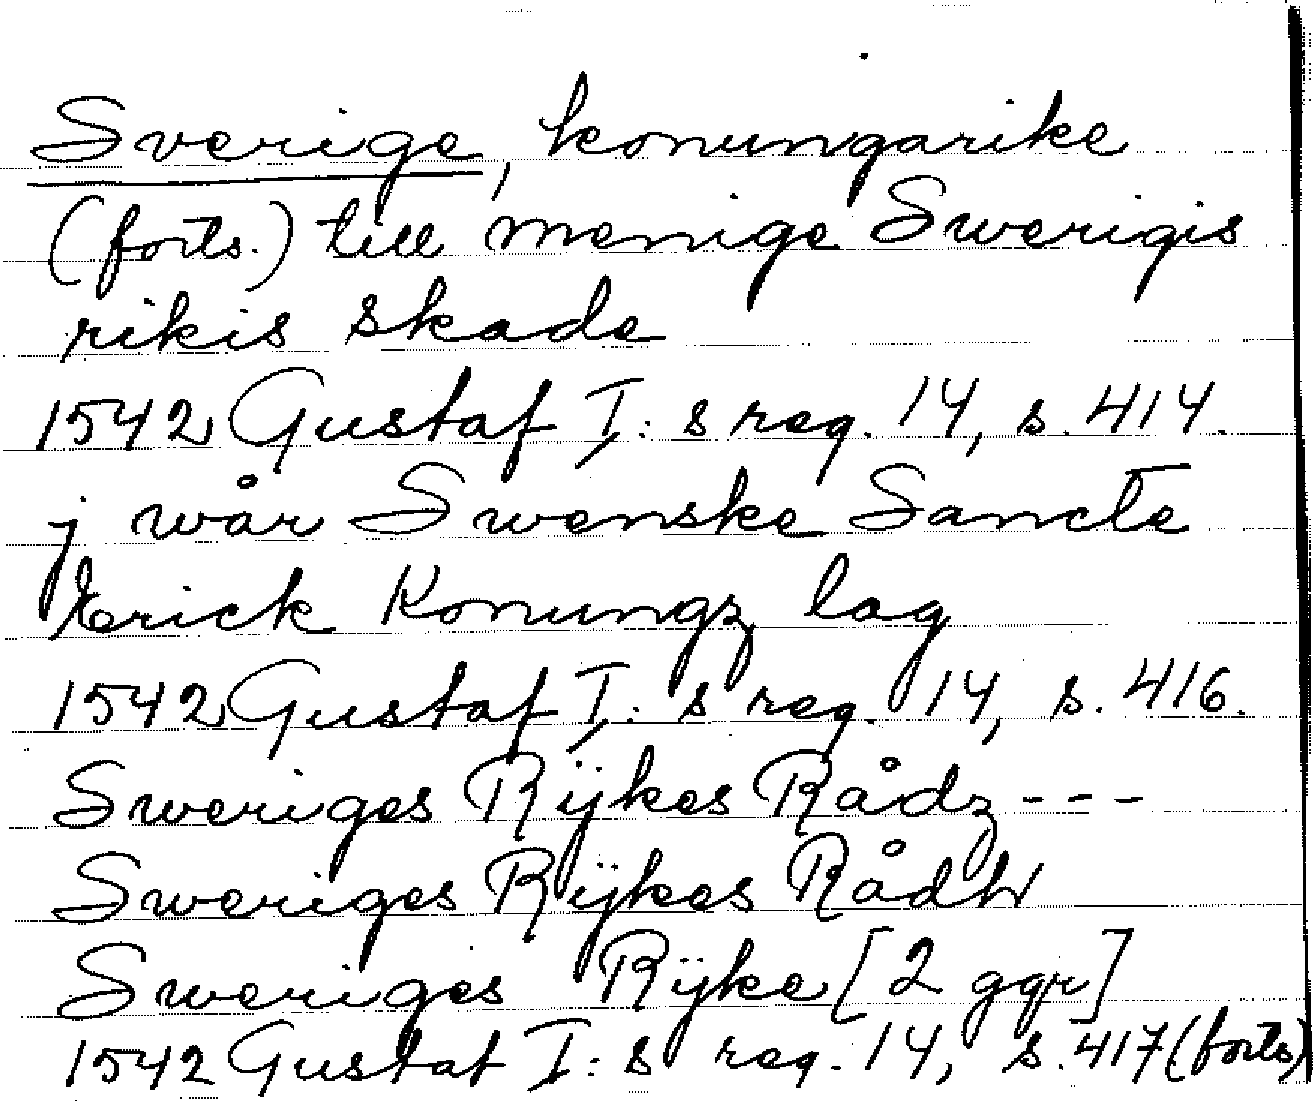 Sverige, konungarike
(forts.) till menige Swerigis
rikis skade
1542 Gustaf I: s reg. 14, s. 414.
j wår Swenske Sancte
Erick Konungz lag
1542 Gustaf I: s reg. 14, s. 416.
Sweriges Rijkes Rådz - - -
Sweriges Rijkes Rådh
Sweriges Rijke [2 ggr]
1542 Gustaf I: s reg. 14, s. 417 (forts)